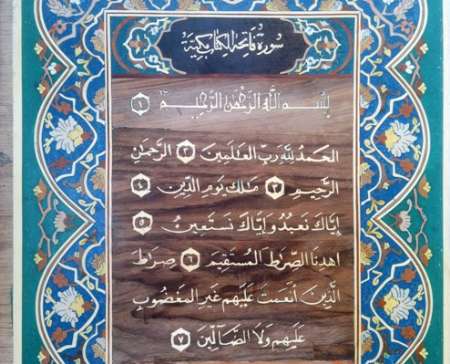 سورة فاتحة الكتاب مكية
بسم الله الرحمن الرحيم ١
الحمد لله رب العالمين ٢ الرحمن
الرحيم ٣ ملك يوم الدين ٤
إياك نعبد وإياك نستعين ٥
اهدنا الصراط المستقيم ٦ صراط
الذين أنعمت عليهم غير المغضوب
عليهم ولا الضآلين ٧